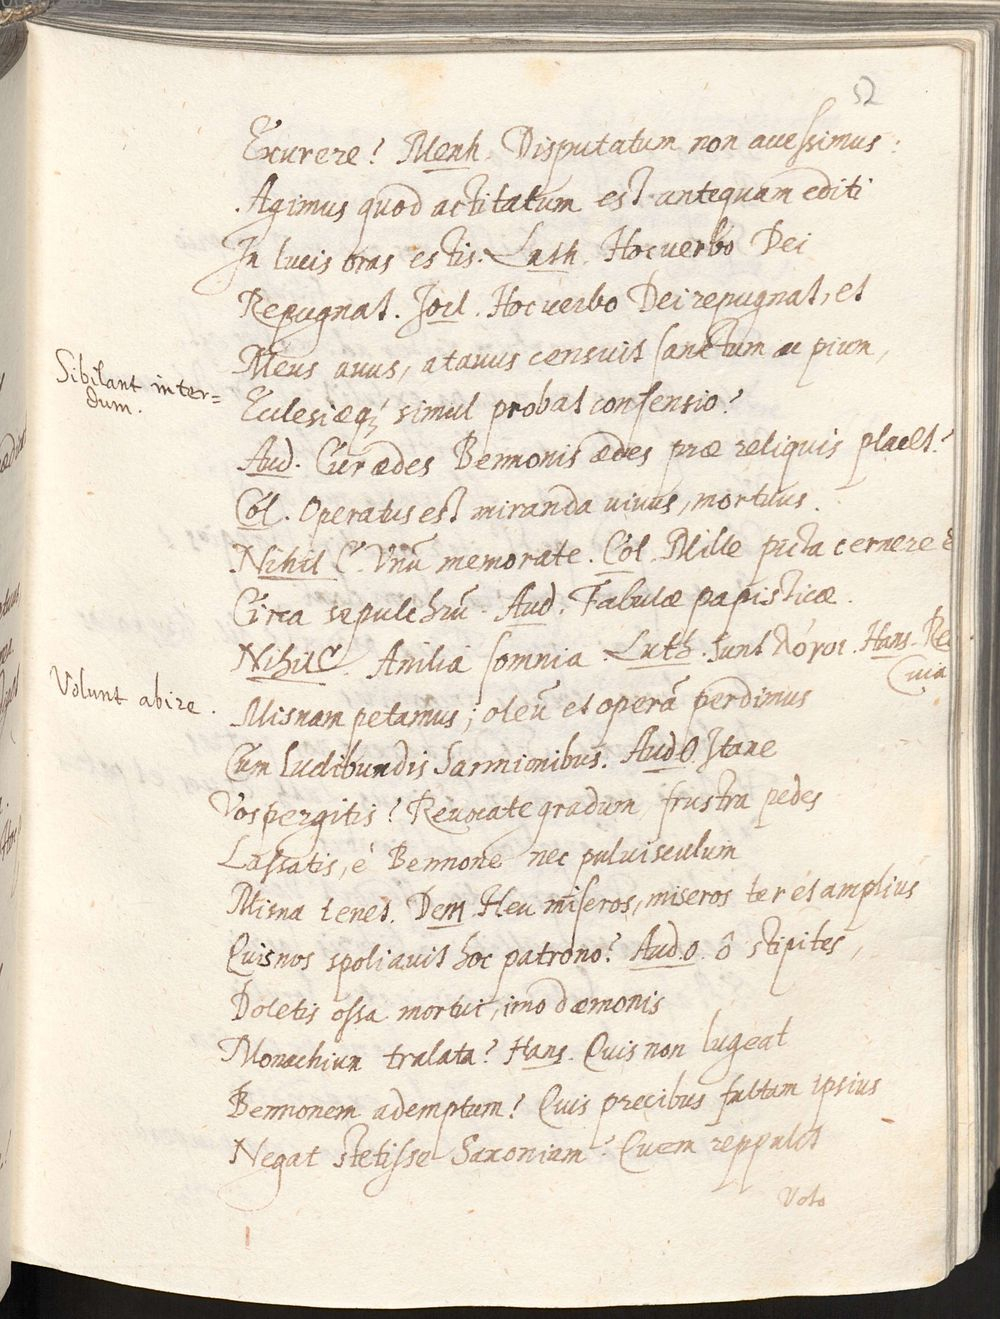 52
Exurere? Menh. Disputatum non auessimus:
Agimus quod actitatum est antequam editi
In lucis oras estis. Luth. Hoc uerbo Dei
Repugnat. Jorl. Hoc uerbo Dei repugnat, et
Meus auus, atauus censuit sanctum ac pium,
Sibilant inter=
dum.
Eclesiæq; simul probat consensio?
Aud. Cur ædes Bennonis ædes præ reliquis placet?
Col. Operatus est miranda uiuus, mortuus.
Nihil C. Vnũ memorate. Col. Mille picta cernere è
Circa sepulchrũ. Aud. Fabulæ papisticæ.
Nihil C. Anilia somnia. Luth. Sunt λόγοι. Hans. Re
cuia
Volunt abire.
Misnam petamus; oleũ et operã perdimus
Cum ludibundis Sarmionibus. Aud.O. Itane
Vos pergitis? Reuocate gradum, frustra pedes
Lassatis, è Bennone nec puluisculum
Misna tenet. Dem. Heu miseros, miseros ter et amplius
Quis nos spoliauit hoc patrono? Aud.O. ô stipites,
Doletis ossa mortui, imo dæmonis
Monachium tralata? Hans. Quis non lugeat
Bennonem ademptum? Quis precibus fultam ipsius
Negat stetisse Saxoniam? Quem reppulit
Voto